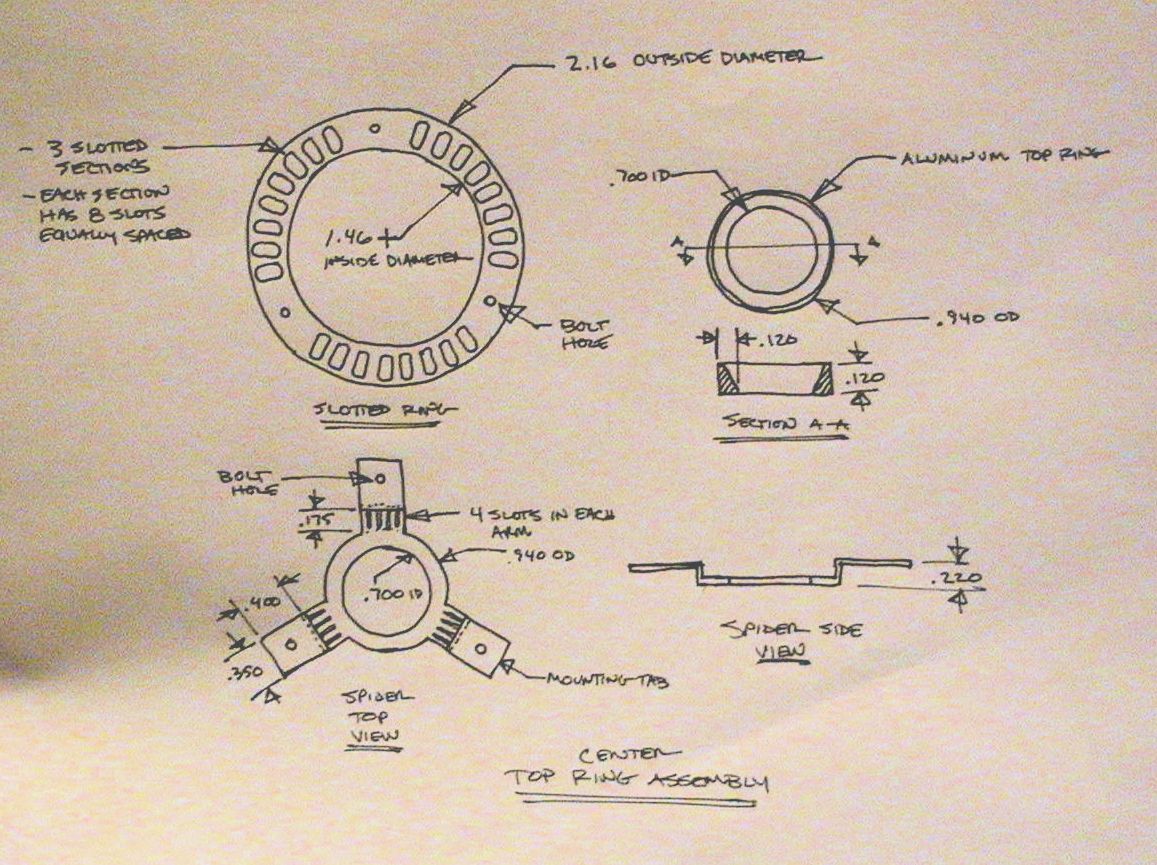 2.16 OUTSIDE DIAMETER
- 3 SLOTTED
SECTIONS
- EACH SECTION
HAS 8 SLOTS
EQUALLY SPACED
1.46
INSIDE DIAMETER
BOLT
HOLE
SLOTTED RING
ALUMINUM TOP RING
.700 ID
A
A
.940 OD
.120
.120
SECTION A-A
BOLT
HOLE
.175
4 SLOTS IN EACH
ARM
.940 OD
.700 ID
.400
.350
MOUNTING TAB
SPIDER
TOP
VIEW
.220
SPIDER SIDE
VIEW
CENTER
TOP RING ASSEMBLY